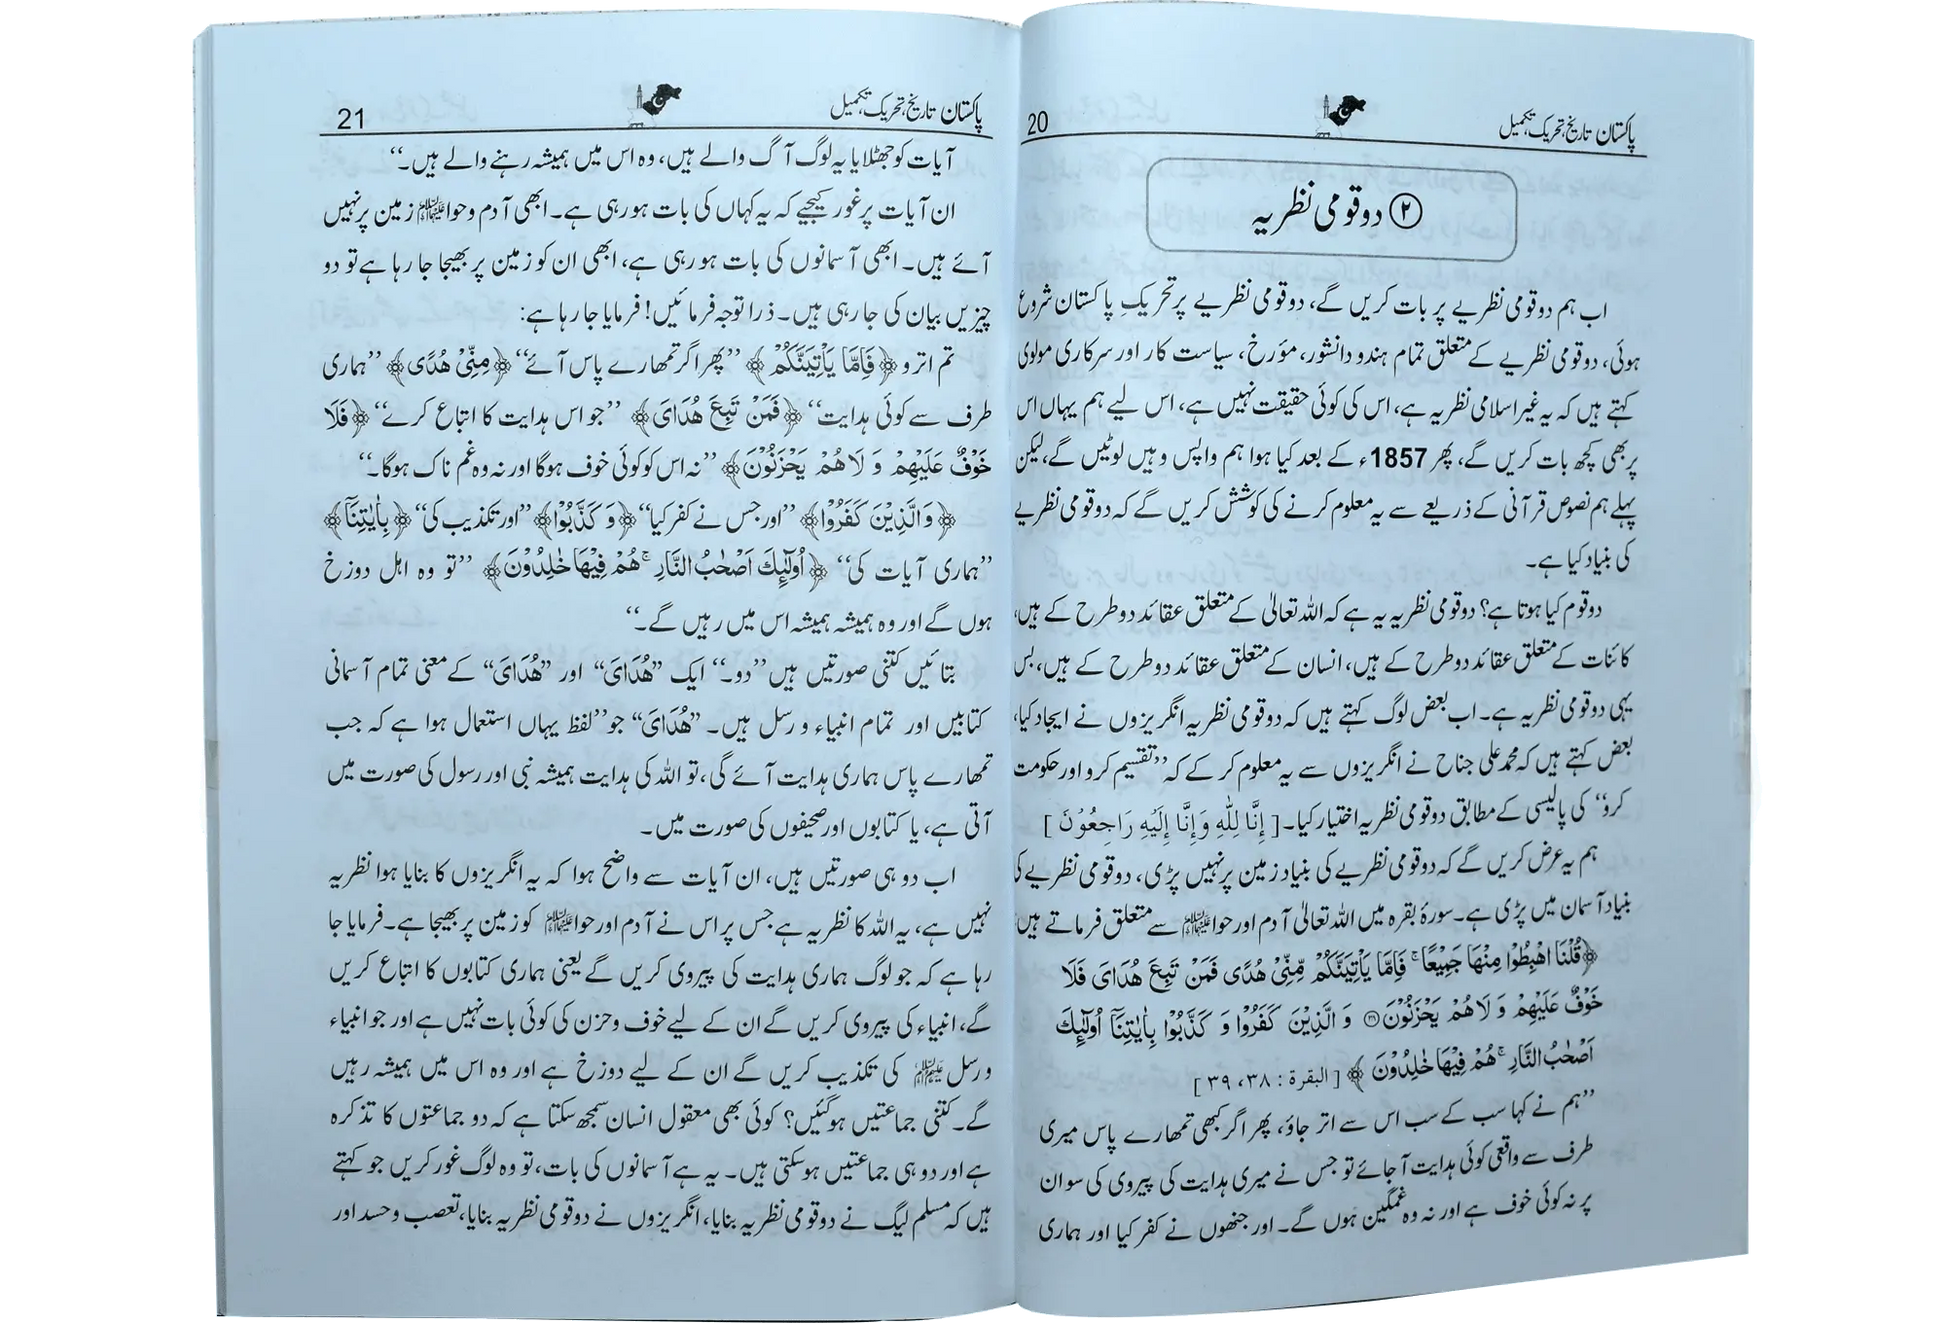 پاکستان تاریخ، تحریک، تکمیل
20
② دو قومی نظریہ
اب ہم دو قومی نظریے پر بات کریں گے، دو قومی نظریے پر تحریکِ پاکستان شروع
ہوئی، دو قومی نظریے کے متعلق تمام ہندو دانشور، مؤرخ، سیاست کار اور سرکاری مولوی
کہتے ہیں کہ یہ غیر اسلامی نظریہ ہے، اس کی کوئی حقیقت نہیں ہے، اس لیے ہم یہاں اس
پر بھی کچھ بات کریں گے، پھر 1857ء کے بعد کیا ہوا ہم واپس وہیں لوٹیں گے، لیکن
پہلے ہم نصوصِ قرآنی کے ذریعے سے یہ معلوم کرنے کی کوشش کریں گے کہ دو قومی نظریے
کی بنیاد کیا ہے۔
دو قوم کیا ہوتا ہے؟ دو قومی نظریہ یہ ہے کہ اللہ تعالیٰ کے متعلق عقائد دو طرح کے ہیں،
کائنات کے متعلق عقائد دو طرح کے ہیں، انسان کے متعلق عقائد دو طرح کے ہیں، بس
یہی دو قومی نظریہ ہے۔ اب بعض لوگ کہتے ہیں کہ دو قومی نظریہ انگریزوں نے ایجاد کیا،
بعض کہتے ہیں کہ محمد علی جناح نے انگریزوں سے یہ معلوم کر کے کہ ’’تقسیم کرو اور حکومت
کرو‘‘ کی پالیسی کے مطابق دو قومی نظریہ اختیار کیا۔ [ إِنَّا لِلّٰهِ وَإِنَّا إِلَيْهِ رَاجِعُوْنَ ]
ہم یہ عرض کریں گے کہ دو قومی نظریے کی بنیاد زمین پر نہیں پڑی، دو قومی نظریے کی
بنیاد آسمان میں پڑی ہے۔ سورۂ بقرہ میں اللہ تعالیٰ آدم اور حوا علیہما السلام سے متعلق فرماتے ہیں:
﴿قُلْنَا اهْبِطُوْا مِنْهَا جَمِيْعًا ۚ فَاِمَّا يَاْتِيَنَّكُمْ مِّنِّيْ هُدًى فَمَنْ تَبِعَ هُدَايَ فَلَا
خَوْفٌ عَلَيْهِمْ وَ لَا هُمْ يَحْزَنُوْنَ ۝۳۸ وَ الَّذِيْنَ كَفَرُوْا وَ كَذَّبُوْا بِاٰيٰتِنَاۤ اُولٰٓىِٕكَ
اَصْحٰبُ النَّارِ ۚ هُمْ فِيْهَا خٰلِدُوْنَ ﴾ [ البقرة : ۳۸، ۳۹ ]
’’ہم نے کہا سب کے سب اس سے اتر جاؤ، پھر اگر کبھی تمھارے پاس میری
طرف سے واقعی کوئی ہدایت آ جائے تو جس نے میری ہدایت کی پیروی کی سو ان
پر نہ کوئی خوف ہے اور نہ وہ غمگین ہوں گے۔ اور جنھوں نے کفر کیا اور ہماری
پاکستان تاریخ، تحریک، تکمیل
21
آیات کو جھٹلایا یہ لوگ آگ والے ہیں، وہ اس میں ہمیشہ رہنے والے ہیں۔‘‘
ان آیات پر غور کیجیے کہ یہ کہاں کی بات ہو رہی ہے۔ ابھی آدم و حوا علیہما السلام زمین پر نہیں
آئے ہیں۔ ابھی آسمانوں کی بات ہو رہی ہے، ابھی ان کو زمین پر بھیجا جا رہا ہے تو دو
چیزیں بیان کی جا رہی ہیں۔ ذرا توجہ فرمائیں! فرمایا جا رہا ہے:
تم اترو ﴿فَاِمَّا يَاْتِيَنَّكُمْ﴾ ’’پھر اگر تمھارے پاس آئے‘‘ ﴿مِنِّيْ هُدًى﴾ ’’ہماری
طرف سے کوئی ہدایت‘‘ ﴿فَمَنْ تَبِعَ هُدَايَ﴾ ’’جو اس ہدایت کا اتباع کرے‘‘ ﴿فَلَا
خَوْفٌ عَلَيْهِمْ وَ لَا هُمْ يَحْزَنُوْنَ﴾ ’’نہ اس کو کوئی خوف ہوگا اور نہ وہ غم ناک ہوگا۔‘‘
﴿وَ الَّذِيْنَ كَفَرُوْا﴾ ’’اور جس نے کفر کیا‘‘ ﴿وَ كَذَّبُوْا﴾ ’’اور تکذیب کی‘‘ ﴿بِاٰيٰتِنَاۤ﴾
’’ہماری آیات کی‘‘ ﴿اُولٰٓىِٕكَ اَصْحٰبُ النَّارِ ۚ هُمْ فِيْهَا خٰلِدُوْنَ﴾ ’’تو وہ اہل دوزخ
ہوں گے اور وہ ہمیشہ ہمیشہ اس میں رہیں گے۔‘‘
بتائیں کتنی صورتیں ہیں ’’دو۔‘‘ ایک ”هُدَايَ“ اور ”هُدَايَ“ کے معنی تمام آسمانی
کتابیں اور تمام انبیاء و رسل ہیں۔ ”هُدَايَ“ جو ’’لفظ یہاں استعمال ہوا ہے کہ جب
تمھارے پاس ہماری ہدایت آئے گی، تو اللہ کی ہدایت ہمیشہ نبی اور رسول کی صورت میں
آتی ہے، یا کتابوں اور صحیفوں کی صورت میں۔
اب دو ہی صورتیں ہیں، ان آیات سے واضح ہوا کہ یہ انگریزوں کا بنایا ہوا نظریہ
نہیں ہے، یہ اللہ کا نظریہ ہے جس پر اس نے آدم اور حوا علیہما السلام کو زمین پر بھیجا ہے۔ فرمایا جا
رہا ہے کہ جو لوگ ہماری ہدایت کی پیروی کریں گے یعنی ہماری کتابوں کا اتباع کریں
گے، انبیاء کی پیروی کریں گے ان کے لیے خوف و حزن کی کوئی بات نہیں ہے اور جو انبیاء
و رسل علیہم السلام کی تکذیب کریں گے ان کے لیے دوزخ ہے اور وہ اس میں ہمیشہ رہیں
گے۔ کتنی جماعتیں ہوگئیں؟ کوئی بھی معقول انسان سمجھ سکتا ہے کہ دو جماعتوں کا تذکرہ
ہے اور دو ہی جماعتیں ہو سکتی ہیں۔ یہ ہے آسمانوں کی بات، تو وہ لوگ غور کریں جو کہتے
ہیں کہ مسلم لیگ نے دو قومی نظریہ بنایا، انگریزوں نے دو قومی نظریہ بنایا، تعصب و حسد اور